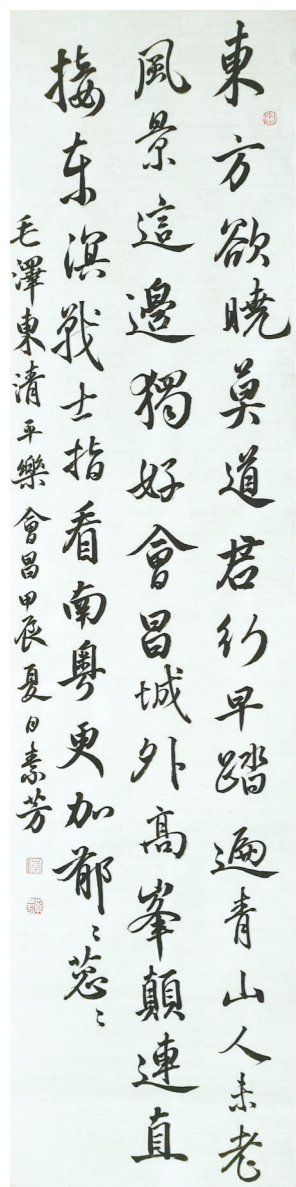 東方欲曉莫道君行早踏遍青山人未老
風景這邊獨好會昌城外高峯顛連直
接东溟戰士指看南粤更加郁〻蔥〻
毛澤東清平樂會昌甲辰夏日素芳